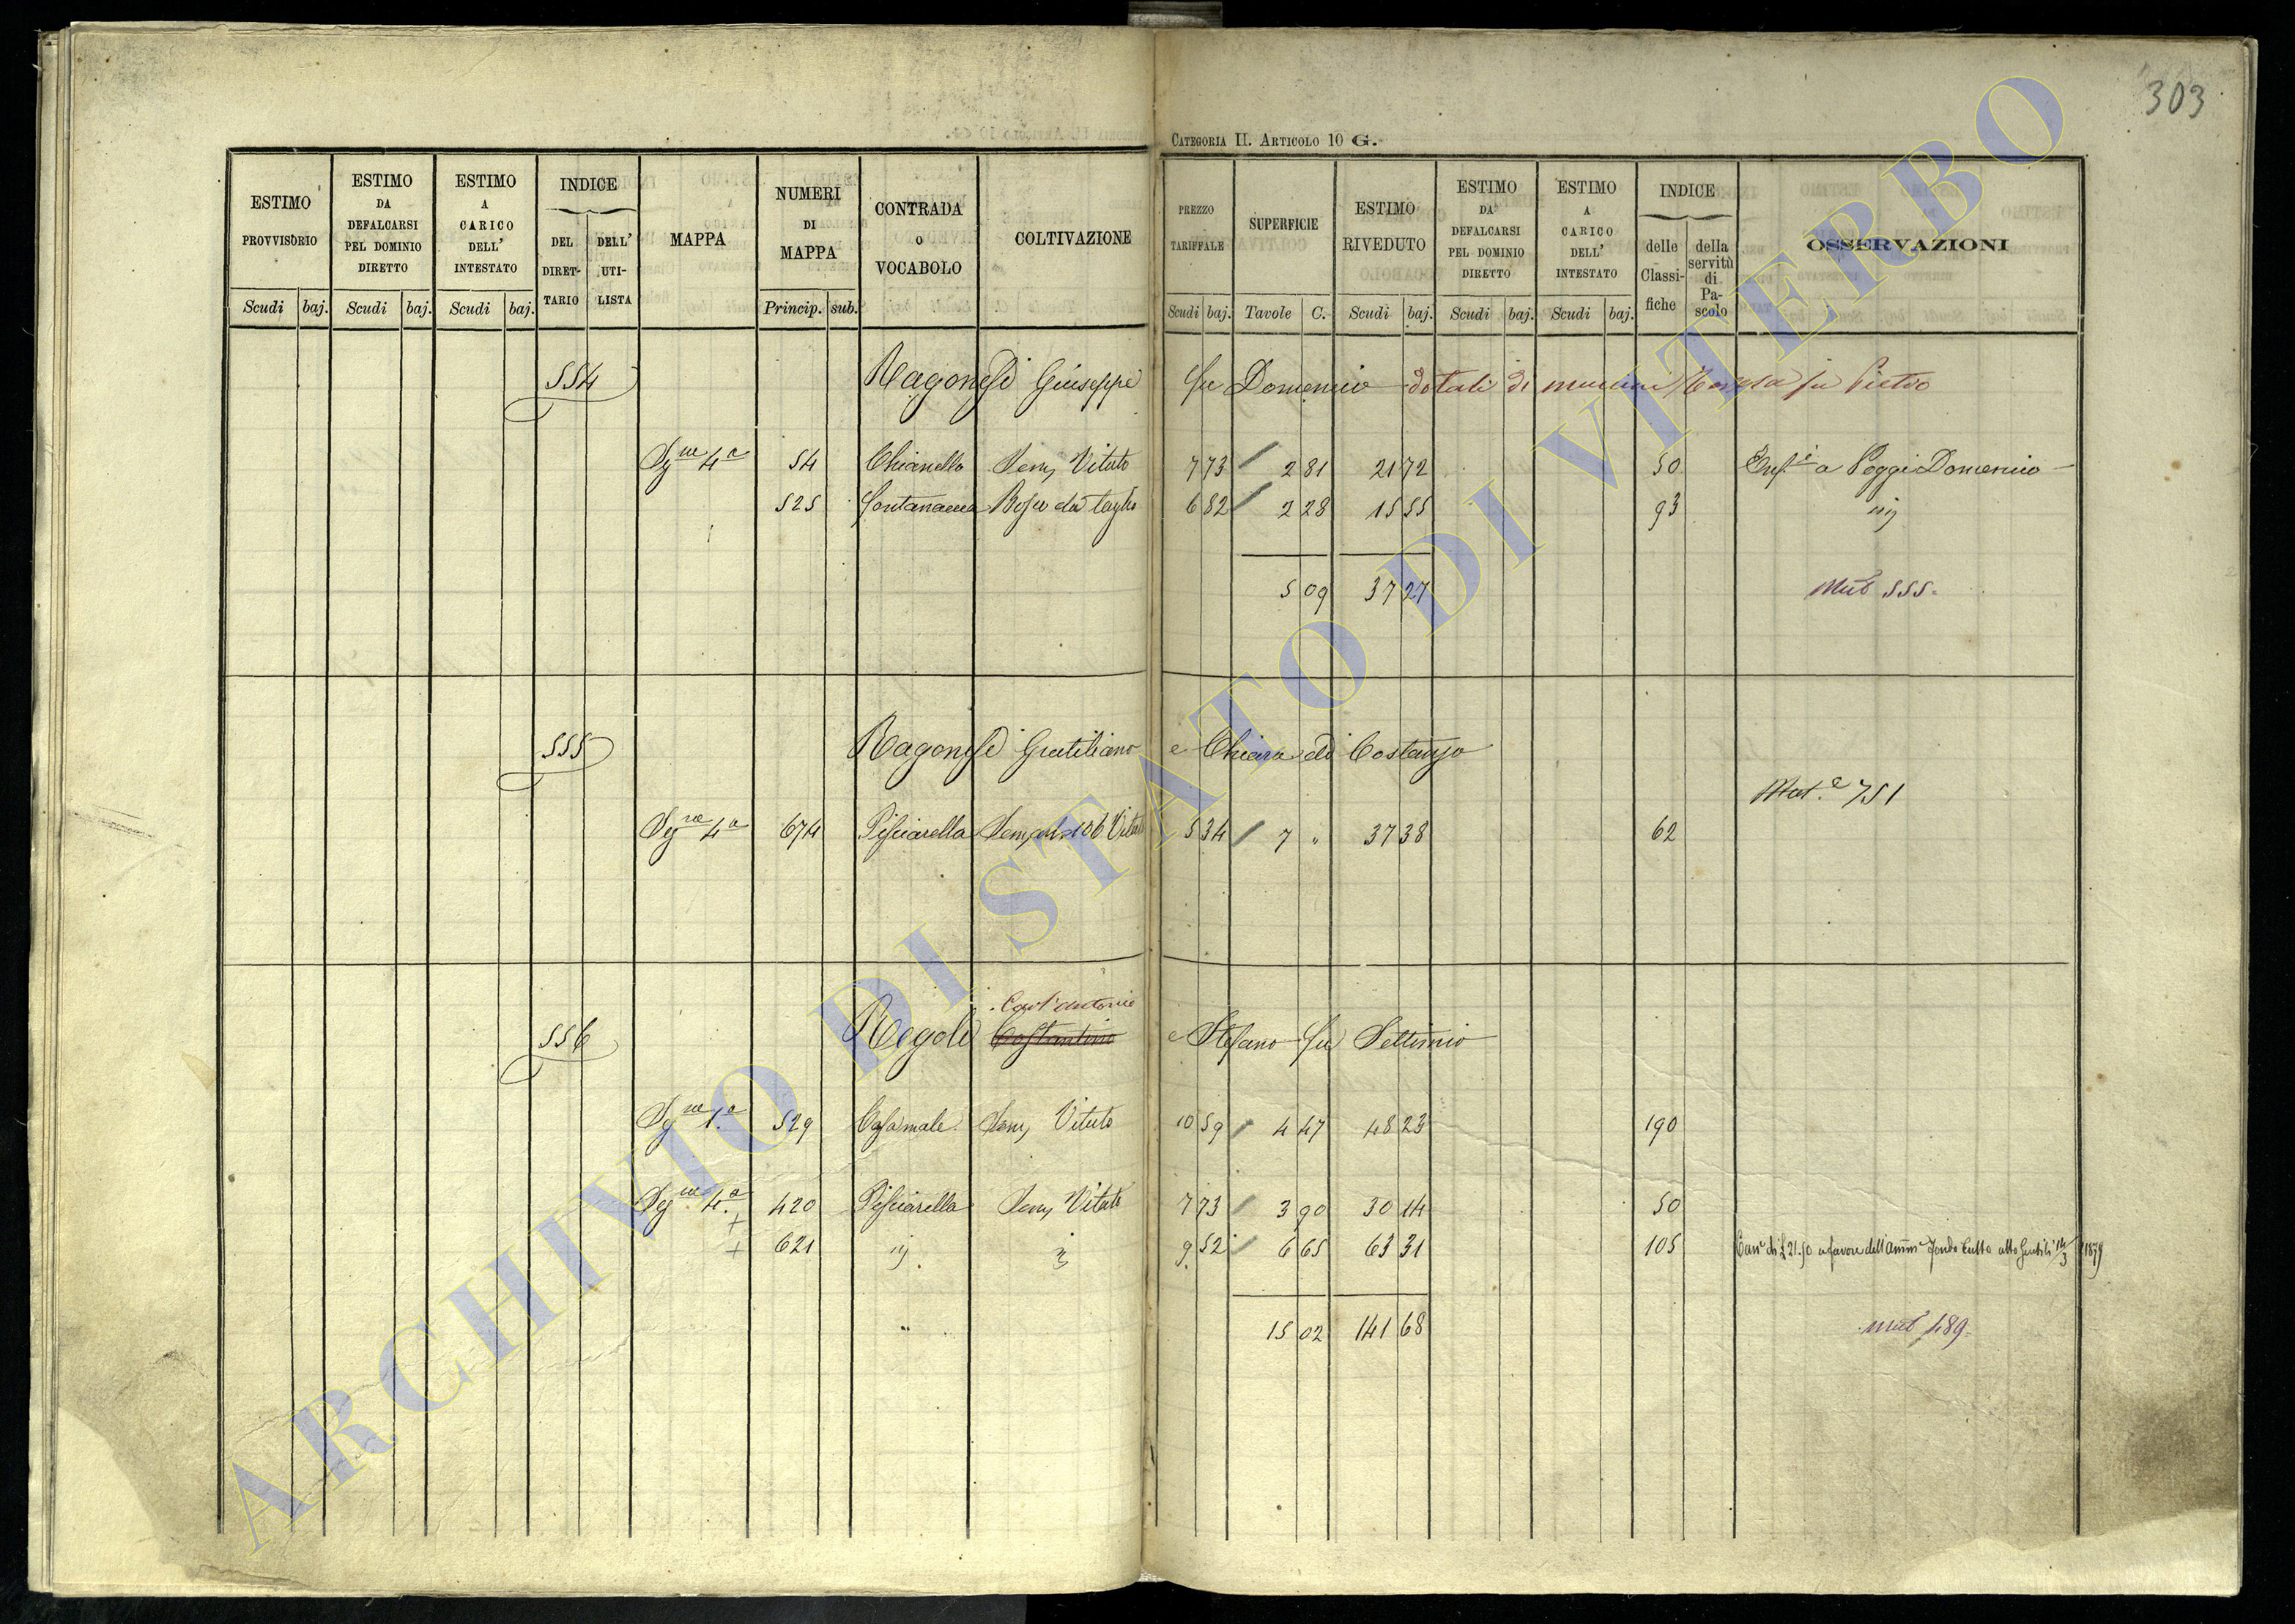 303
CATEGORIA II. ARTICOLO 10 G.
ESTIMO PROVVISORIO
ESTIMO DA DEFALCARSI PEL DOMINIO DIRETTO
ESTIMO A CARICO DELL' INTESTATO
INDICE
DEL DIRETTARIO
DELL' UTILISTA
MAPPA
NUMERI DI MAPPA
CONTRADA O VOCABOLO
COLTIVAZIONE
PREZZO TARIFFALE
SUPERFICIE
ESTIMO RIVEDUTO
ESTIMO DA DEFALCARSI PEL DOMINIO DIRETTO
ESTIMO A CARICO DELL' INTESTATO
INDICE
delle Classifiche
della servitù di Pascolo
OSSERVAZIONI
Scudi baj. Scudi baj. Scudi baj. Princip. sub. Scudi baj. Tavole C. Scudi baj. Scudi baj. Scudi baj.
554 Ragonesi Giuseppe fu Domenico dotali di Teresa fu Pietro
4a 54 Chianello Sem, Vitato 7 73 2 81 21 72 50 a Poggi Domenico
525 Bosco da taglio 6 82 2 28 15 55 93 iij
5 09 37 27 Mut 555
555 Ragonesi Gratiliano e Chiara di Costanzo
Mut.e 751
4a 674 Pisciarella Vitato 5 34 7 " 37 38 62
Cost'antonio
556 Regoli Costantino e Stefano fu Settimio
1a 529 Casamale Sem, Vitato 10 59 4 47 48 23 190
4a 420 Pisciarella Sem, Vitato 7 73 3 90 30 14 50
+
+ 621 iij 9 52 6 65 63 31 105 di £ 21.50 a favore dell'Amm Fondo Culto atto Gentili 14/3 1879
"
15 02 141 68 Mut 489
ARCHIVIO DI STATO DI VITERBO